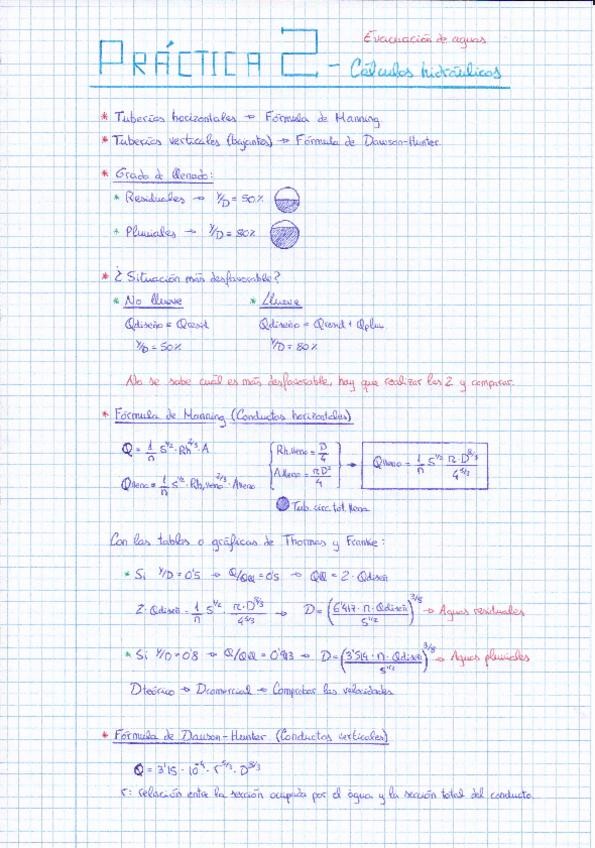 Evacuación de aguas
PRÁCTICA 2 - Cálculos hidráulicos
* Tuberías horizontales → Fórmula de Manning
* Tuberías verticales (bajantes) → Fórmula de Dawson-Hunter
* Grado de llenado:
* Residuales → Y/D = 50%
* Pluviales → Y/D = 80%
* ¿Situación más desfavorable?
* No llueve * Llueve
Qdiseño = Qresid Qdiseño = Qresid + Qpluv
Y/D = 50% Y/D = 80%
No se sabe cuál es más desfavorable, hay que realizar las 2 y comparar.
* Fórmula de Manning (Conductos horizontales)
Q = 1/n · S^1/2 · Rh^2/3 · A
Rh,lleno = D/4
Qlleno = 1/n · S^1/2 · Rh,lleno^2/3 · Alleno
Alleno = πD²/4
→ Qlleno = 1/n S^1/2 π·D^8/3 / 4^5/3
Tub. circ. tot. llena
Con las tablas o gráficas de Thormas y Franke:
* Si Y/D = 0'5 → Q/QQ = 0'5 → QQ = 2·Qdiseñ
2·Qdiseñ = 1/n S^1/2 π·D^8/3 / 4^5/3 → D = (6'417·n·Qdiseñ / S^1/2)^3/8 → Aguas residuales
* Si Y/D = 0'8 → Q/QQ = 0'913 → D = (3'514·n·Qdiseñ / S^1/2)^3/8 → Aguas pluviales
Dteórico → Dcomercial → Comprobar las velocidades
* Fórmula de Dawson-Hunter (Conductos verticales)
Q = 3'15 · 10^-4 · r^5/3 · D^8/3
r: relación entre la sección ocupada por el agua y la sección total del conducto.